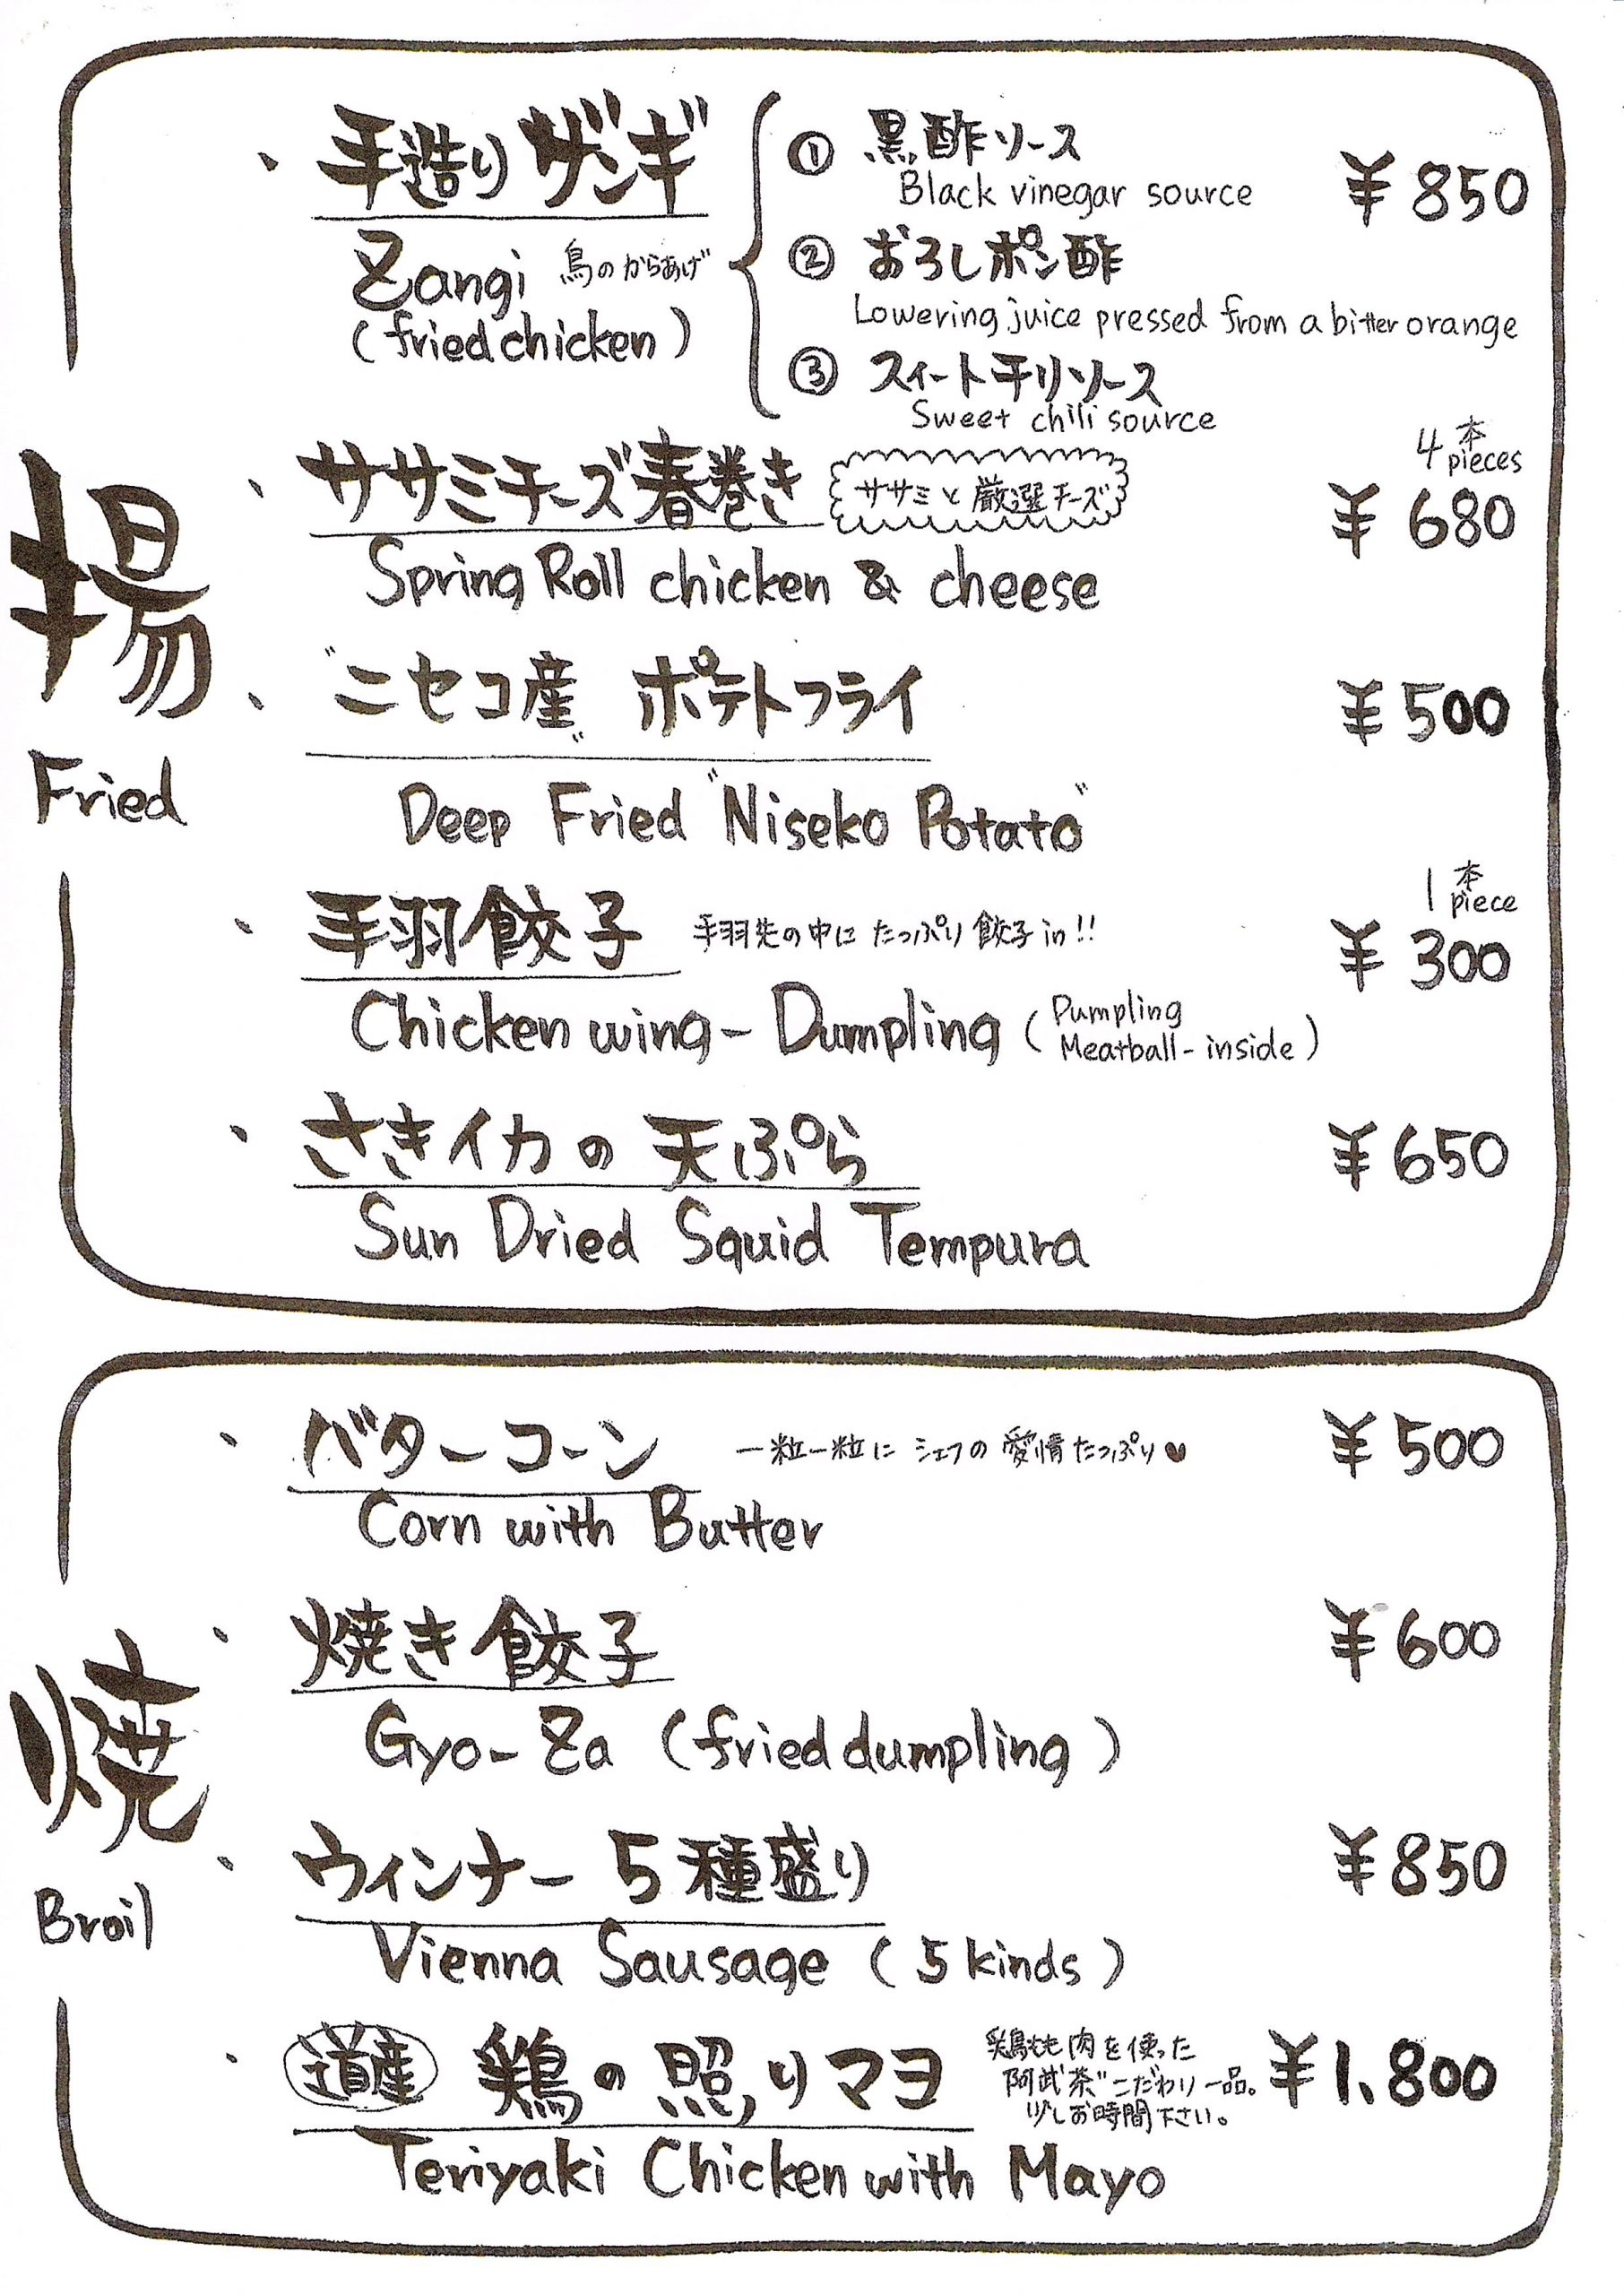 手造りザンギ
Zangi 鳥のからあげ
(fried chicken)
① 黒酢ソース
Black vinegar source
② おろしポン酢
Lowering juice pressed from a bitter orange
③ スィートチリソース
Sweet chili source
¥850
揚
Fried
ササミチーズ春巻き ササミと厳選チーズ
4本
pieces
¥680
Spring Roll chicken & cheese
"ニセコ産" ポテトフライ ¥500
Deep Fried "Niseko Potato"
手羽餃子 手羽先の中に たっぷり餃子in!!
1本
piece
¥300
Chicken wing-Dumpling (Dumpling
Meatball-inside)
さきイカの天ぷら ¥650
Sun Dried Squid Tempura
バターコーン 一粒一粒に シェフの 愛情たっぷり♥ ¥500
Corn with Butter
焼
Broil
焼き餃子 ¥600
Gyo-Za (fried dumpling)
ウィンナー5種盛り ¥850
Vienna Sausage (5 kinds)
道産 鶏の照りマヨ
鶏もも肉を使った
阿武茶"こだわり一品。
少しお時間下さい。
¥1,800
Teriyaki Chicken with Mayo